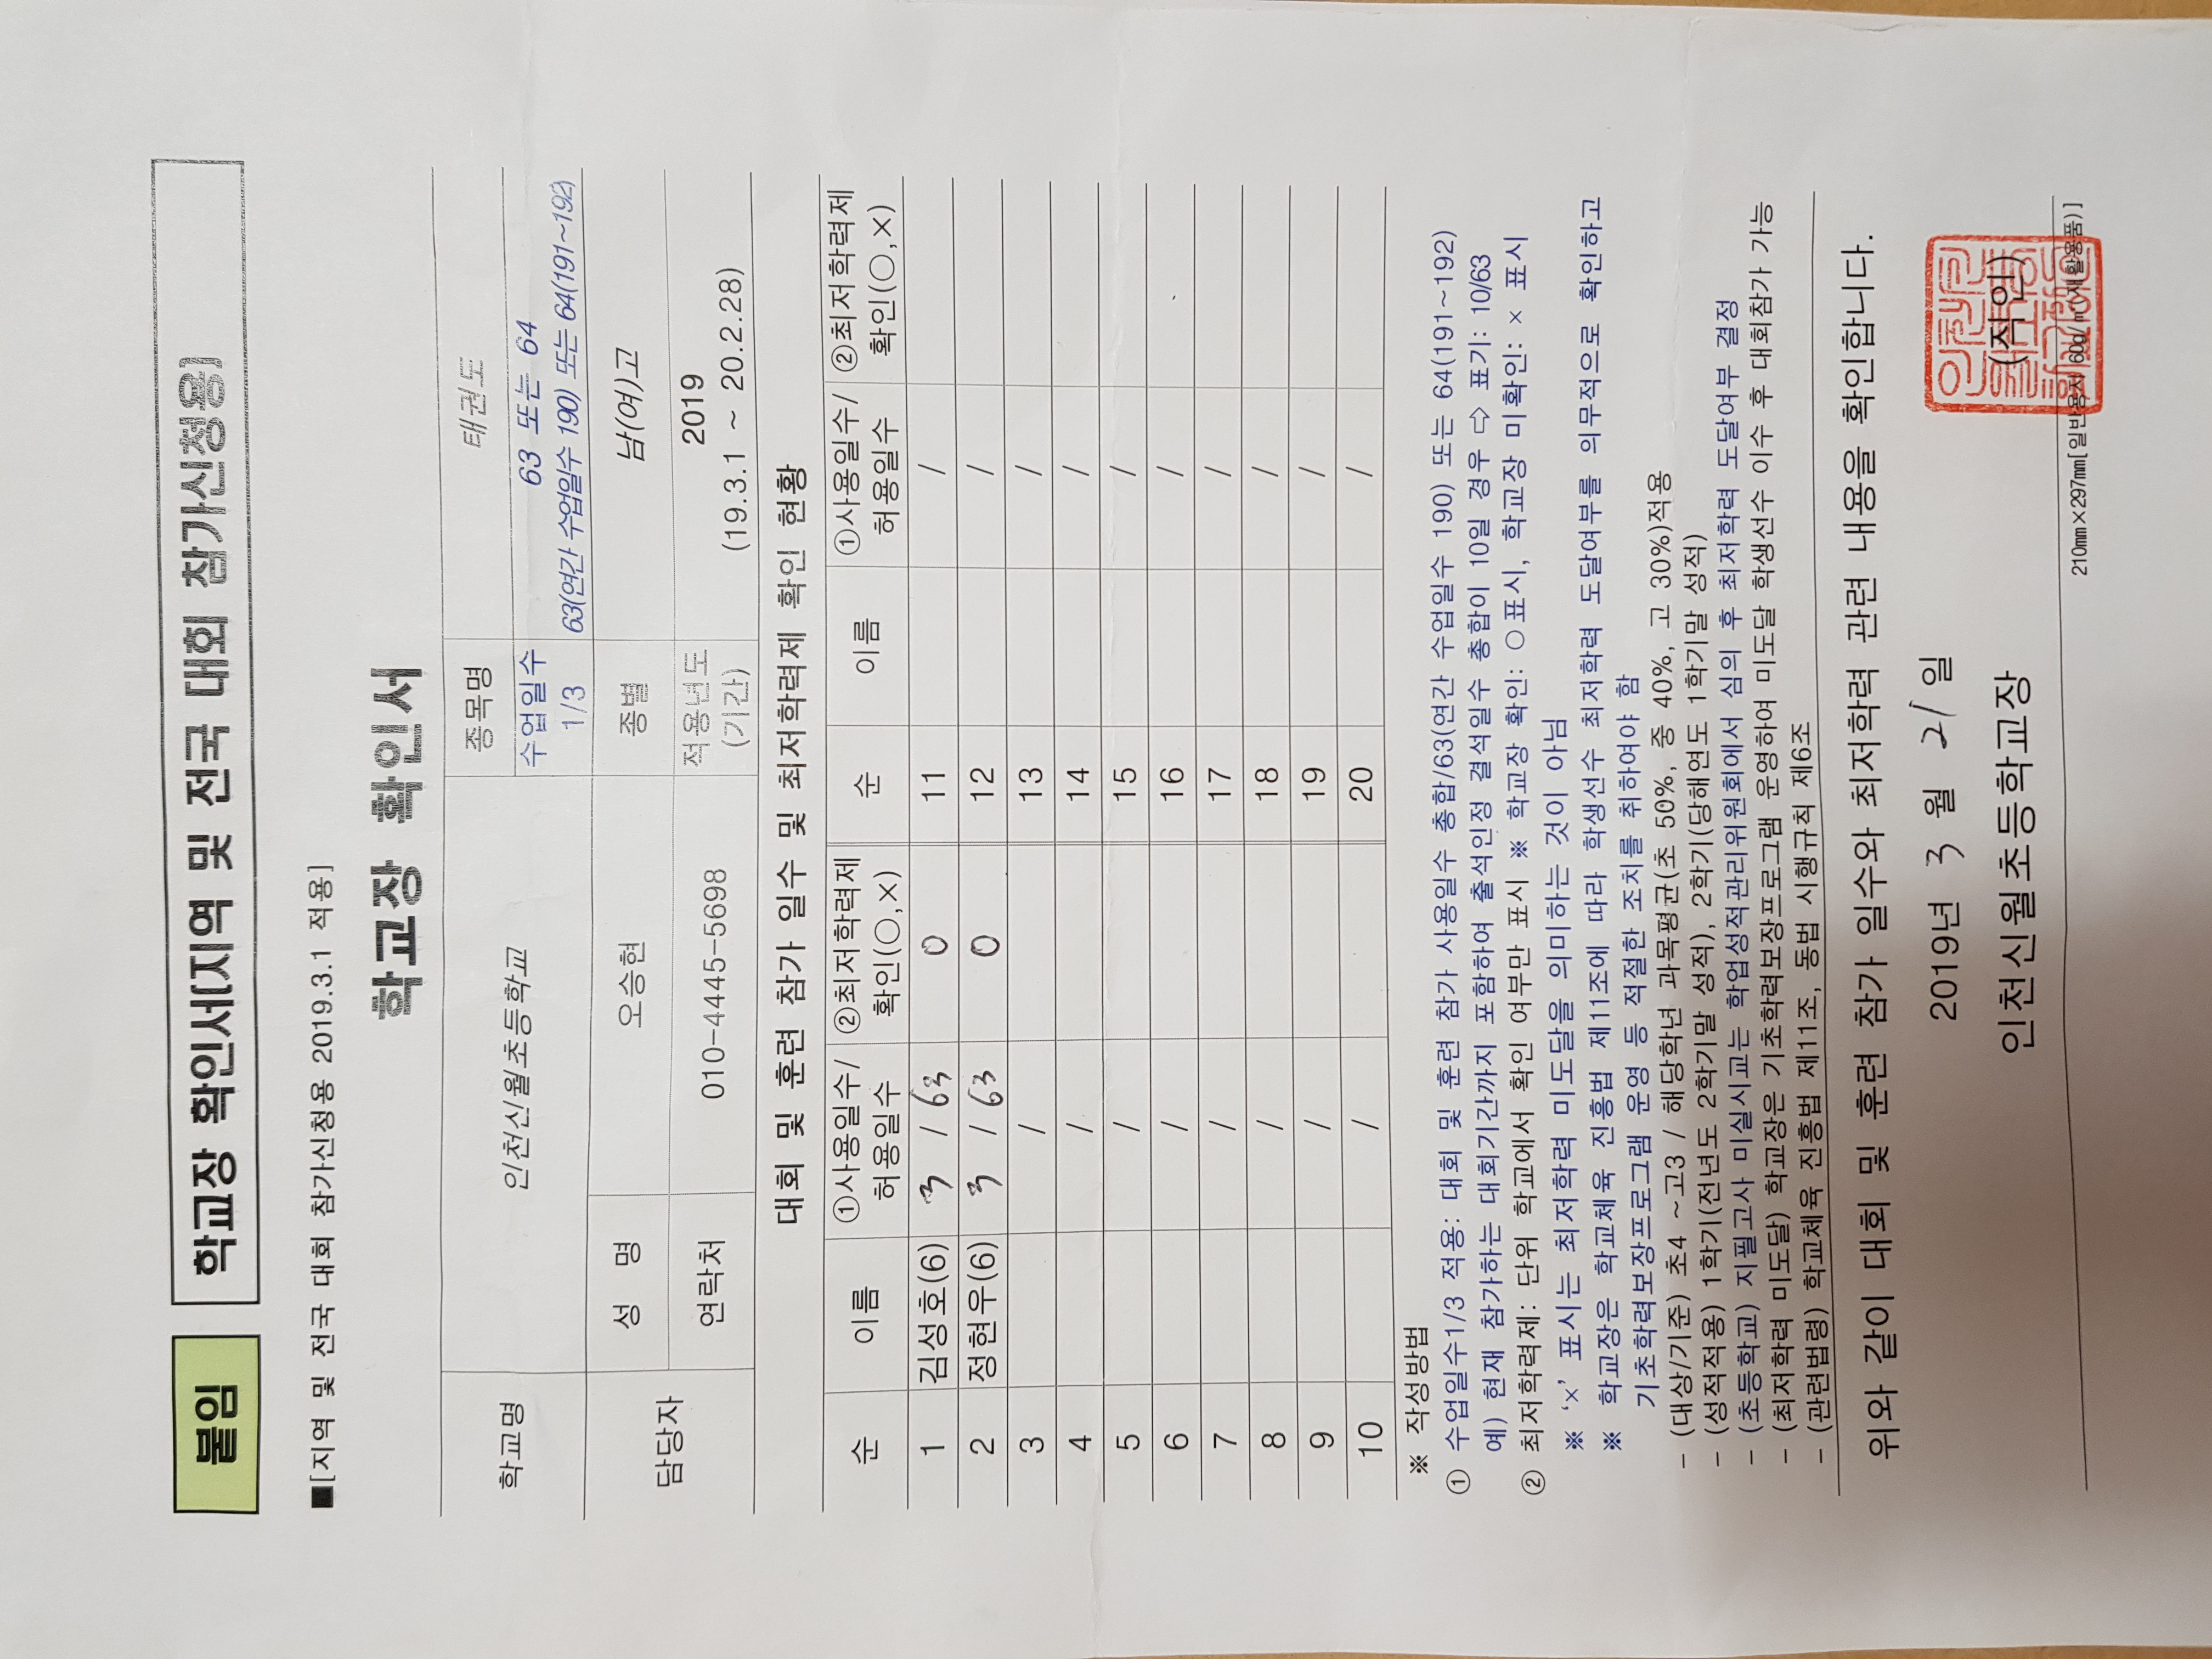 붙임 학교장 확인서(지역 및 전국 대회 참가신청용)
■[지역 및 전국 대회 참가신청용 2019.3.1 적용]
학교장 확인서
학교명 인천신월초등학교 종목명 태권도
수업일수 1/3 63 또는 64
63(연간 수업일수 190) 또는 64(191~192)
담당자 성 명 오승현 종별 남(여)고
연락처 010-4445-5698 적용년도 (기간) 2019
(19.3.1 ~ 20.2.28)
대회 및 훈련 참가 일수 및 최저학력제 확인 현황
순 이름 ①사용일수/허용일수 ②최저학력제 확인(○,×) 순 이름 ①사용일수/허용일수 ②최저학력제 확인(○,×)
1 김성호(6) 3 / 63 O 11 /
2 정현우(6) 3 / 63 O 12 /
3 / 13 /
4 / 14 /
5 / 15 /
6 / 16 /
7 / 17 /
8 / 18 /
9 / 19 /
10 / 20 /
※ 작성방법
① 수업일수1/3 적용: 대회 및 훈련 참가 사용일수 총합/63(연간 수업일수 190) 또는 64(191~192)
예) 현재 참가하는 대회기간까지 포함하여 출석인정 결석일수 총합이 10일 경우 ⇨ 표기: 10/63
② 최저학력제: 단위 학교에서 확인 여부만 표시 ※ 학교장 확인: ○표시, 학교장 미확인: × 표시
※ ‘×’ 표시는 최저학력 미도달을 의미하는 것이 아님
※ 학교장은 학교체육 진흥법 제11조에 따라 학생선수 최저학력 도달여부를 의무적으로 확인하고
기초학력보장프로그램 운영 등 적절한 조치를 취하여야 함
- (대상/기준) 초4 ~고3 / 해당학년 과목평균(초 50%, 중 40%, 고 30%)적용
- (성적적용) 1학기(전년도 2학기말 성적), 2학기(당해연도 1학기말 성적)
- (초등학교) 지필고사 미실시교는 학업성적관리위원회에서 심의 후 최저학력 도달여부 결정
- (최저학력 미도달) 학교장은 기초학력보장프로그램 운영하여 미도달 학생선수 이수 후 대회참가 가능
- (관련법령) 학교체육 진흥법 제11조, 동법 시행규칙 제6조
위와 같이 대회 및 훈련 참가 일수와 최저학력 관련 내용을 확인합니다.
2019년 3 월 21 일
인천신월초등학교장 (직인)
210mm×297mm[일반용지 60g/㎡(재활용품)]